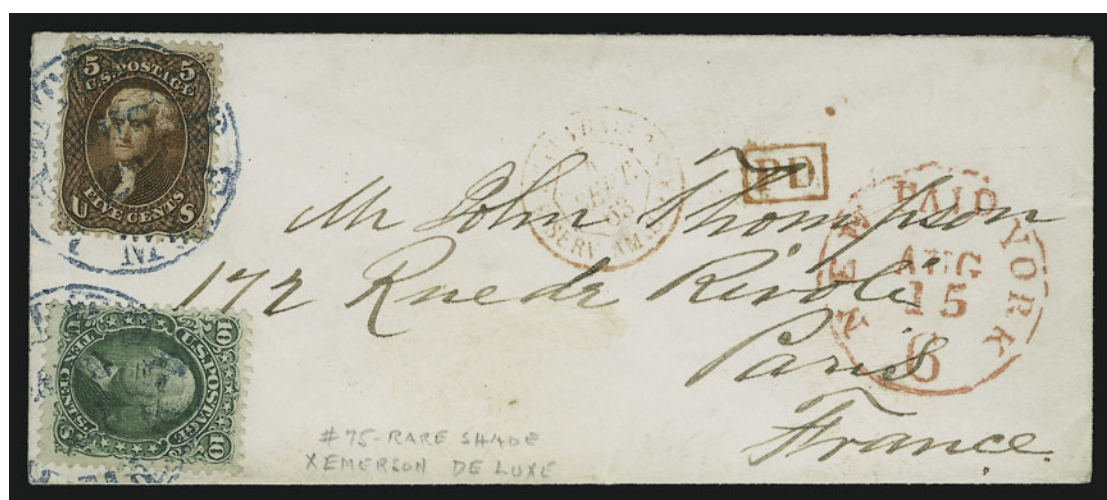 5 5
U.S. POSTAGE
FIVE CENTS
U S
10 10
U.S. POSTAGE
TEN CENTS.
PD
NEW YORK
PAID
AUG
15
6
Mr John Thompson
172 Rue de Rivoli
Paris
France.
#75-RARE SHADE
X EMERSON DE LUXE